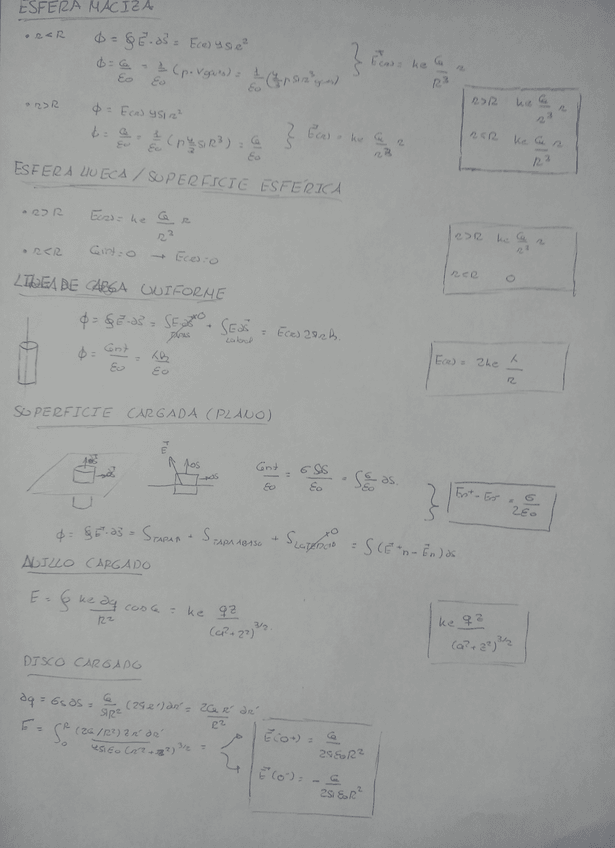 ESFERA MACIZA
• r<R Φ = ∮E⃗·ds⃗ = E(r) 4πr²
Φ = Q/ε0 = 1/ε0 (ρ·V) = 1/ε0 (4/3 ρπr³) } E⃗(r) = ke Q/R³ r
• r>R Φ = E(r) 4πr²
= Q/ε0 = 1/ε0 (ρ 4/3 πR³) = Q/ε0 } E⃗(r) = ke Q/r³ r
r>R ke Q/r³ r
r≤R ke Q/R³ r
ESFERA HUECA / SUPERFICIE ESFÉRICA
• r>R E(r) = ke Q/r³ r
• r<R Qint = 0 → E(r) = 0
r>R ke Q/r³ r
r≤R 0
LÍNEA DE CARGA UNIFORME
Φ = ∮E⃗·ds⃗ = ∫E⃗·ds⃗ + ∫E⃗ds⃗ = E(r) 2πrh
Φ = Qint/ε0 = λh/ε0
E(r) = 2ke λ/r
SUPERFICIE CARGADA (PLANO)
E⃗ ds⃗
Qint/ε0 = σδS/ε0 = ∫σ/ε0 ds.
En⁺ - En⁻ = σ/2ε0
Φ = ∮E⃗·ds⃗ = ∫TAPA + ∫TAPA ABAJO + ∫LATERAL 0 = ∫(E⃗⁺n - E⃗n)ds
ANILLO CARGADO
E = ∮ ke dq/R² cos α = ke qz/(a²+z²)^3/2.
ke qz/(a²+z²)^3/2
DISCO CARGADO
dq = σs ds = Q/πR² (2πr')dr' = 2Q r'/R² dr'
E = ∫0^R (2Q/R²) z r' dr'/4πε0 (R²+z²)^3/2 =
E⃗(0+) = Q/2πε0R²
E⃗(0⁻) = - Q/2πε0R²